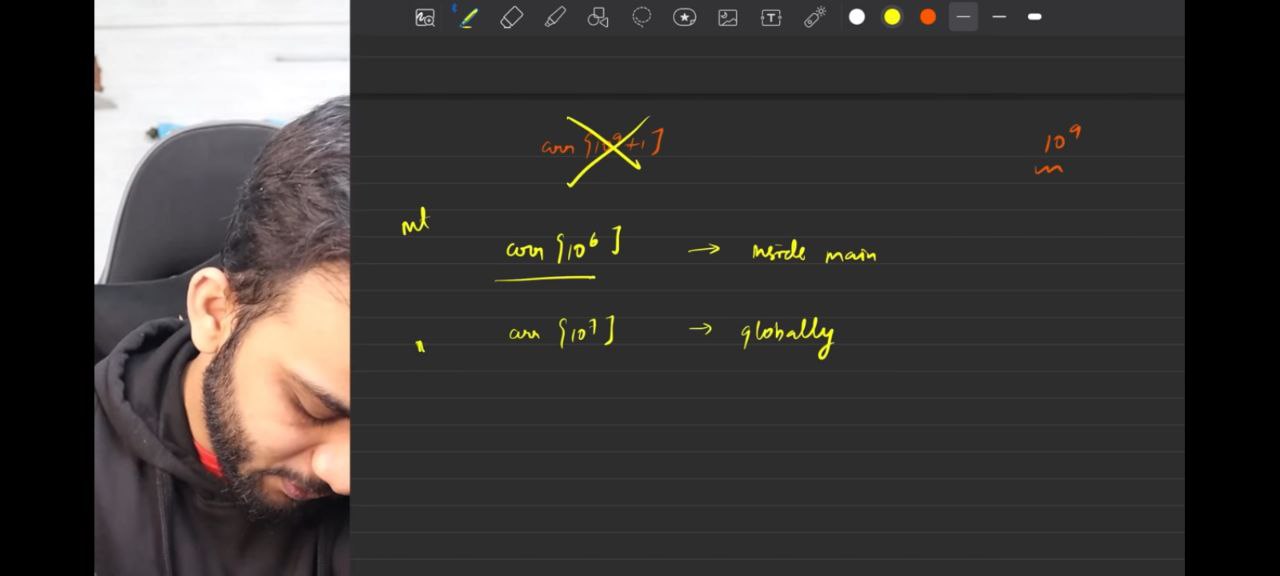 arr [10⁹+1]
10⁹
int
arr [10⁶] → inside main
arr [10⁷] → globally
"